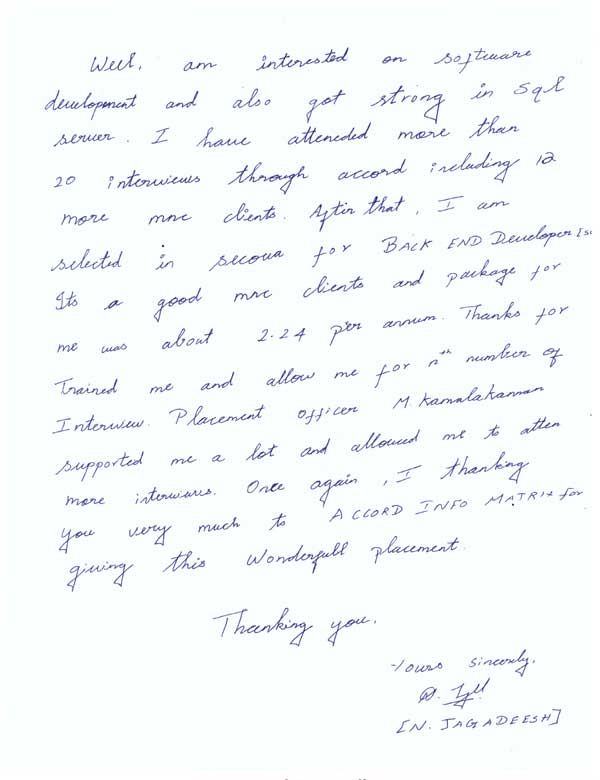 Well, am interested on software
development and also got strong in Sql
server. I have atteneded more than
20 interviews through accord including 12
more mnc clients. After that, I am
selected in secova for BACK END Developer
Its a good mnc clients and package for
me was about 2.24 per annum. Thanks for
Trained me and allow me for nth number of
Interview. Placement officer M Kamalakannan
supported me a lot and allowed me to atten
more interviews. Once again, I thanking
you very much to ACCORD INFO MATRIX for
giving this Wonderfull placement.
Thanking you,
Yours Sincerely,
[N. JAGADEESH]